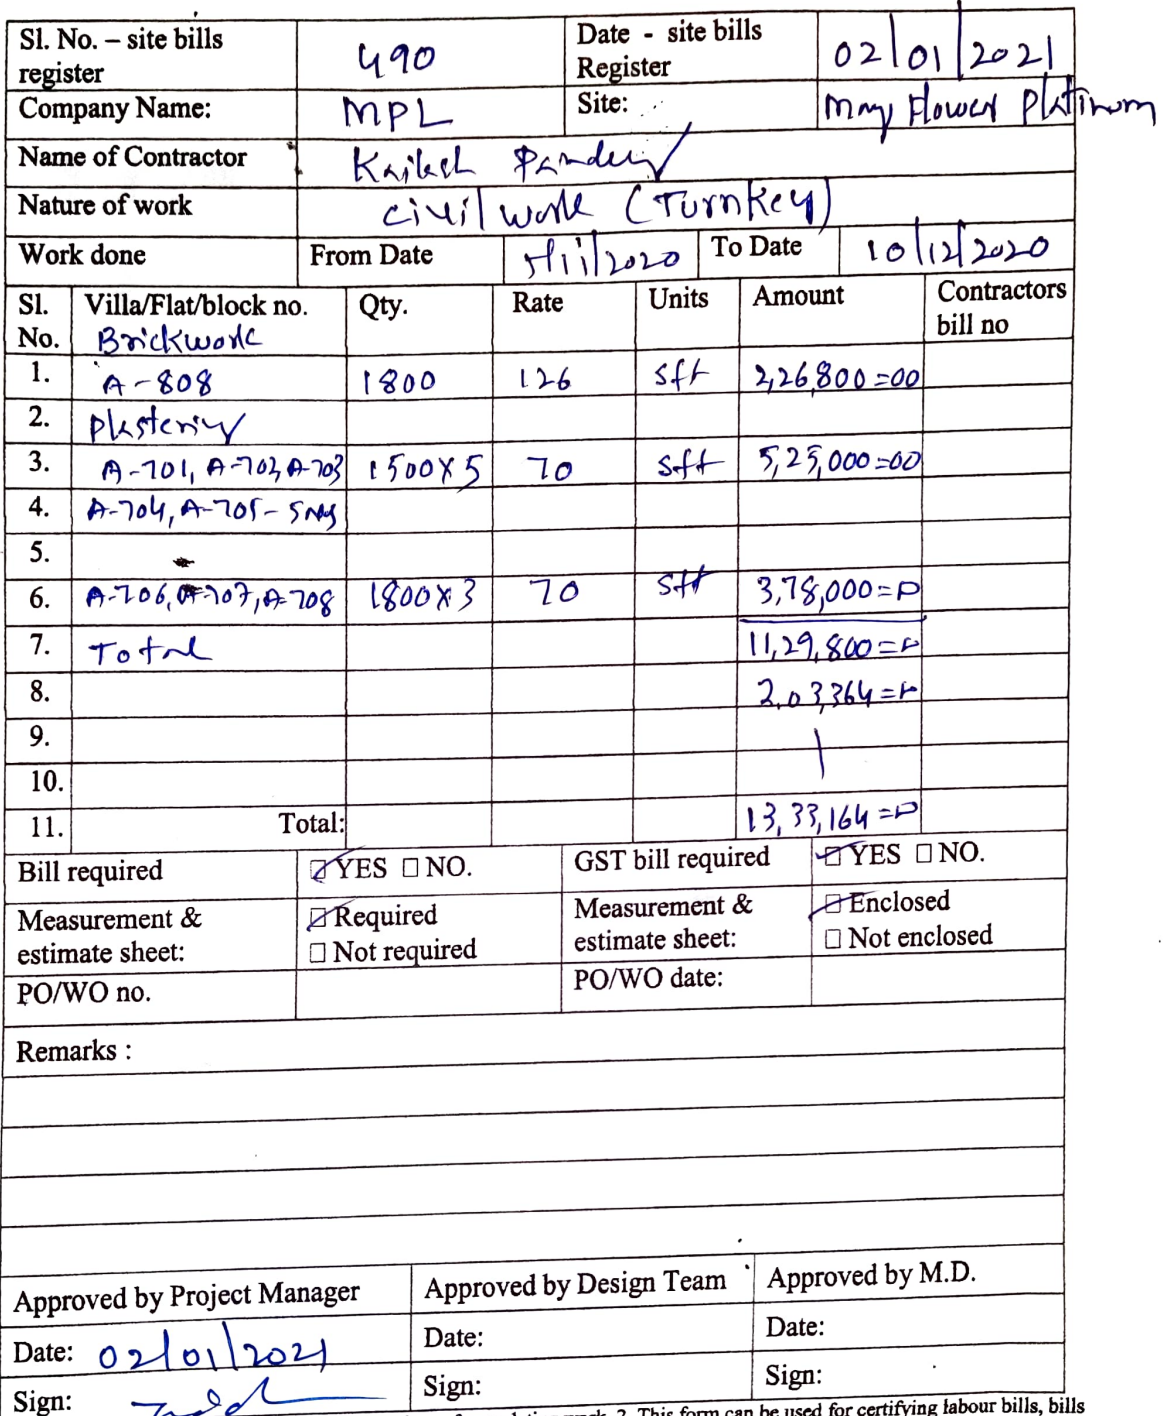 Sl. No. – site bills register 490 Date - site bills Register 02/01/2021
Company Name: MPL Site: May Flower Platinum
Name of Contractor Kailash Pandey
Nature of work civil work (Turnkey)
Work done From Date 5/11/2020 To Date 10/12/2020
Sl. No. Villa/Flat/block no. Qty. Rate Units Amount Contractors bill no
Brickwork
1. A-808 1800 126 sft 2,26,800=00
2. Plastering
3. A-701, A-702, A-703 1500X5 70 sft 5,25,000=00
4. A-704, A-705- 5 Nos
5.
6. A-706, A-707, A-708 1800X3 70 sft 3,78,000=00
7. Total 11,29,800=00
8. 2,03,364=00
9.
10.
11. Total: 13,33,164=00
Bill required YES NO. GST bill required YES NO.
Measurement & estimate sheet: Required Not required Measurement & estimate sheet: Enclosed Not enclosed
PO/WO no. PO/WO date:
Remarks :
Approved by Project Manager Approved by Design Team Approved by M.D.
Date: 02/01/2021 Date: Date:
Sign: Sign: Sign:
2. This form can be used for certifying labour bills, bills